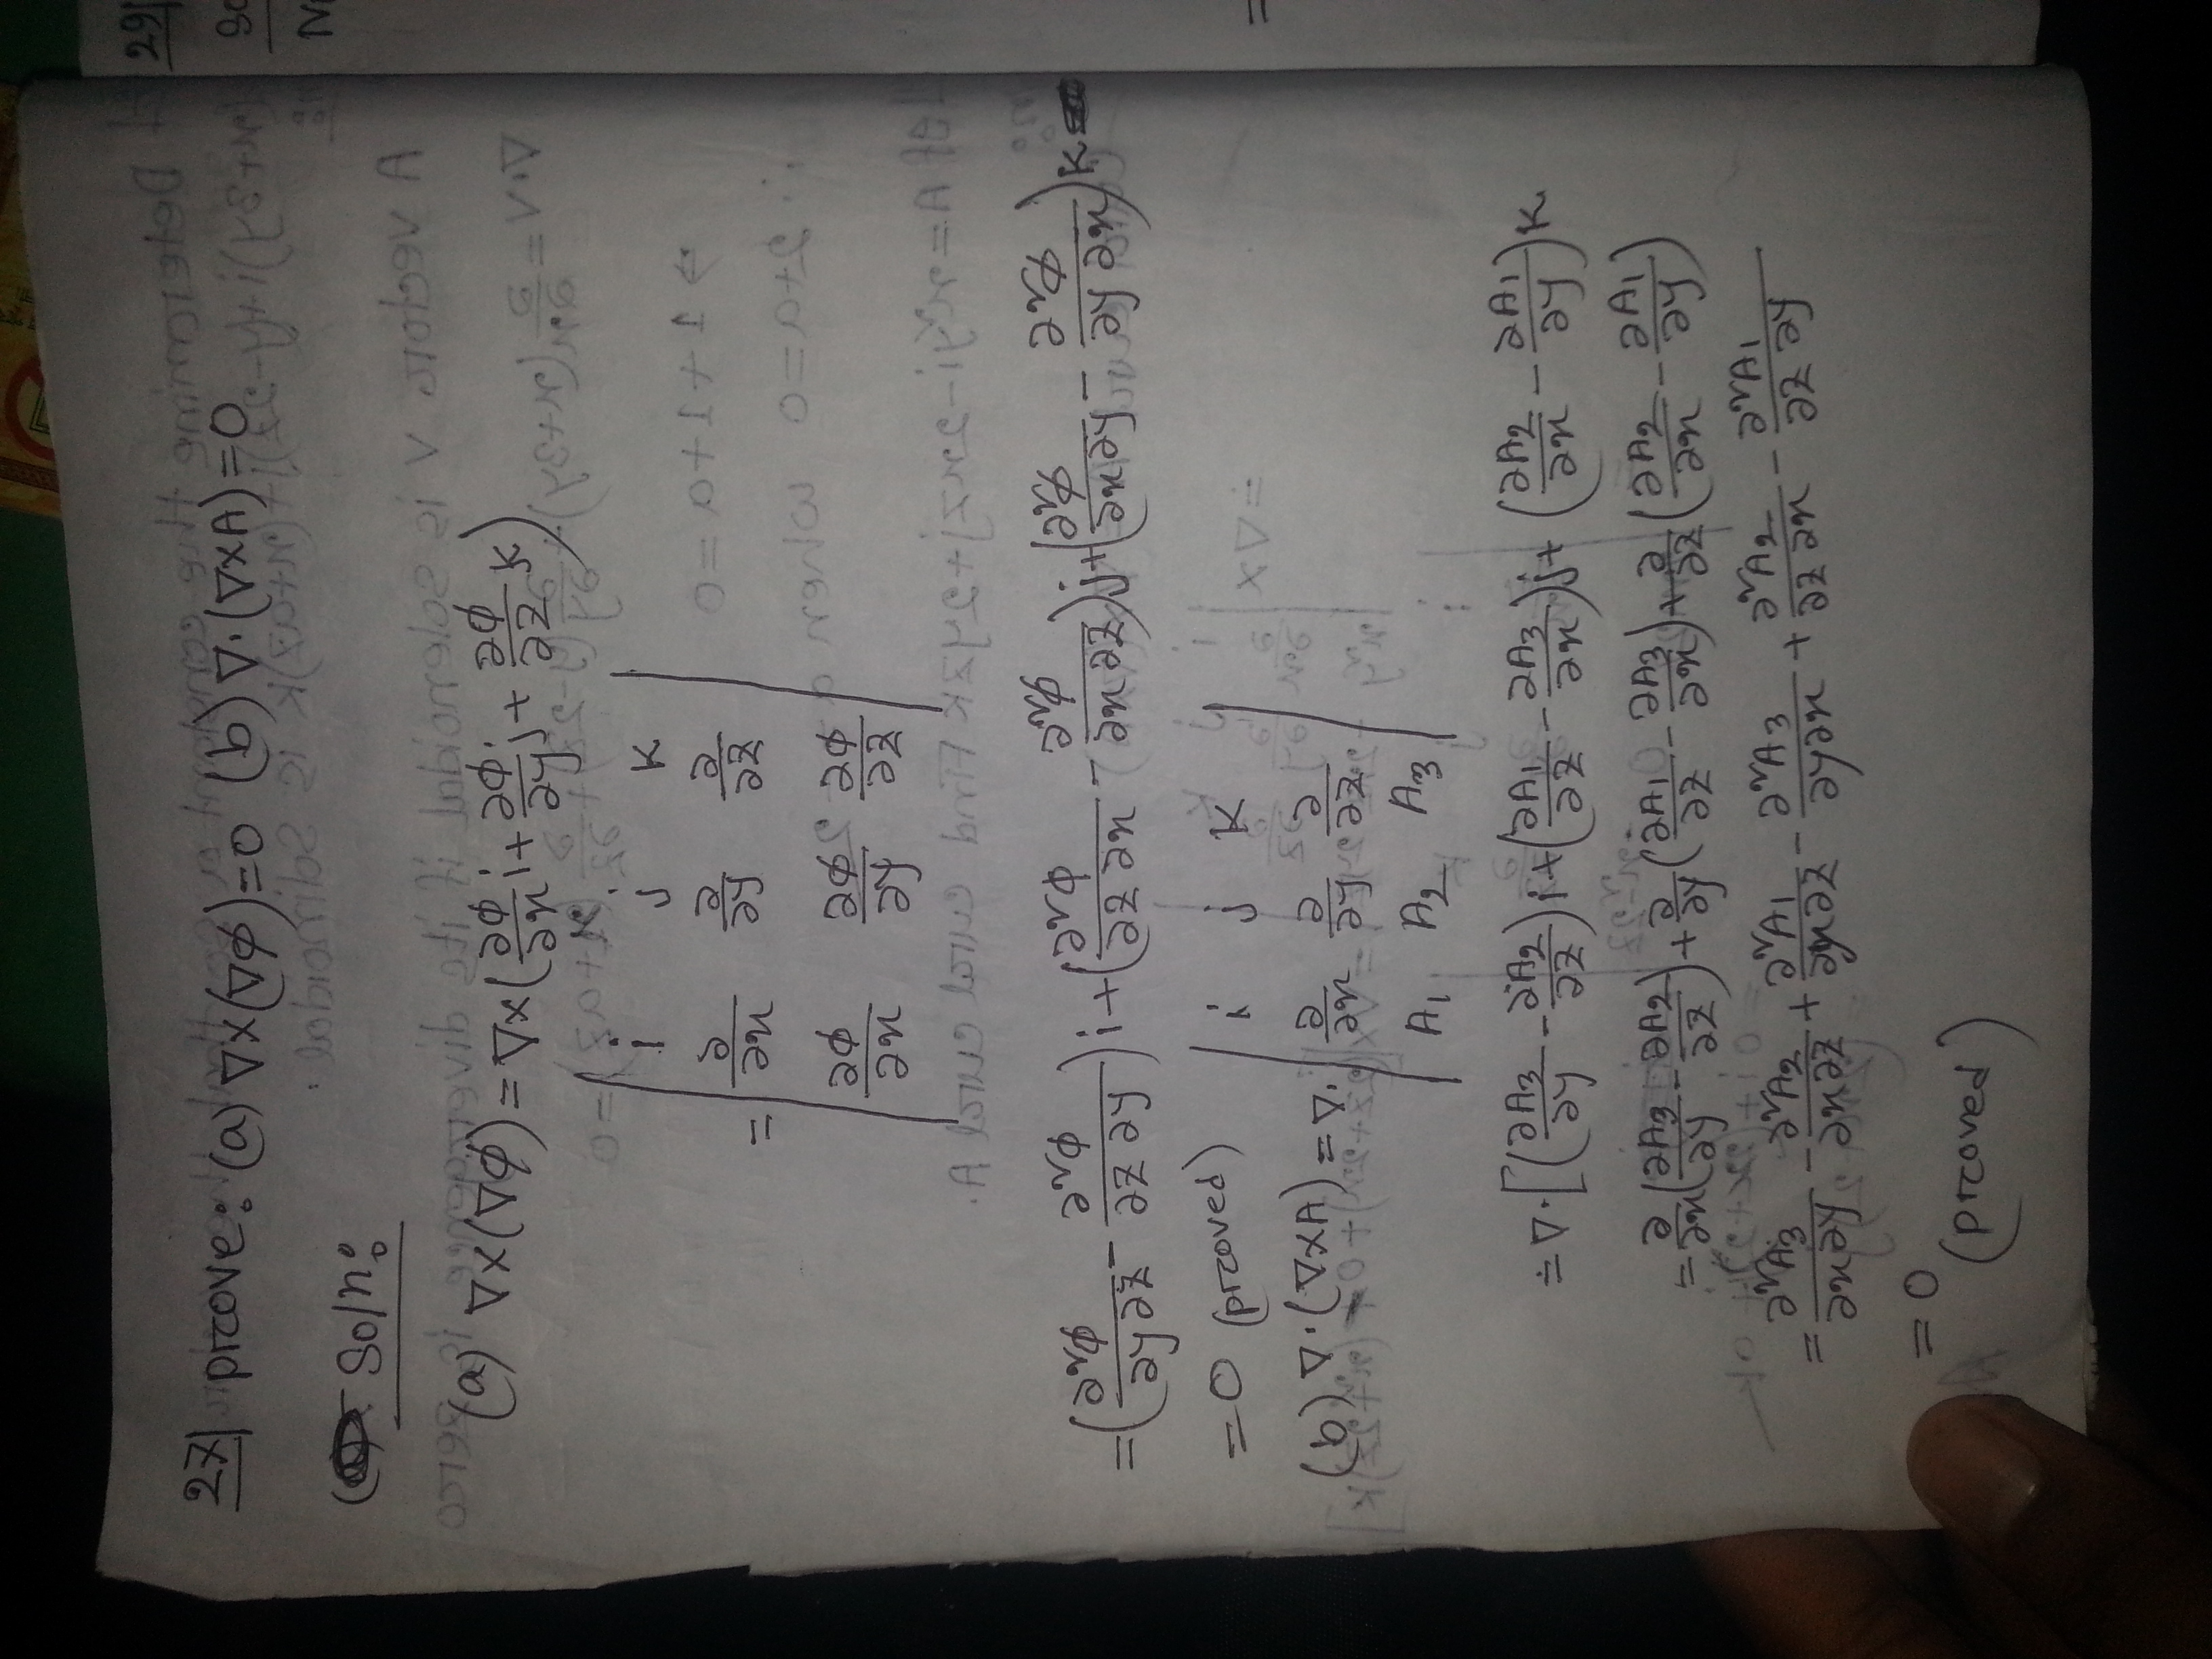 27| prove: (a) ∇×(∇φ)=0 (b) ∇·(∇×A)=0
Soln:
(a) ∇×(∇φ) = ∇×(∂φ/∂x i + ∂φ/∂y j + ∂φ/∂z k)
= | i j k |
| ∂/∂x ∂/∂y ∂/∂z |
| ∂φ/∂x ∂φ/∂y ∂φ/∂z |
= (∂²φ/∂y∂z - ∂²φ/∂z∂y) i + (∂²φ/∂z∂x - ∂²φ/∂x∂z) j + (∂²φ/∂x∂y - ∂²φ/∂y∂x) k
= 0 (proved)
(b) ∇·(∇×A) = ∇· | i j k |
| ∂/∂x ∂/∂y ∂/∂z |
| A₁ A₂ A₃ |
= ∇·[(∂A₃/∂y - ∂A₂/∂z) i + (∂A₁/∂z - ∂A₃/∂x) j + (∂A₂/∂x - ∂A₁/∂y) k
= ∂/∂x (∂A₃/∂y - ∂A₂/∂z) + ∂/∂y (∂A₁/∂z - ∂A₃/∂x) + ∂/∂z (∂A₂/∂x - ∂A₁/∂y)
= ∂²A₃/∂x∂y - ∂²A₂/∂x∂z + ∂²A₁/∂y∂z - ∂²A₃/∂y∂x + ∂²A₂/∂z∂x - ∂²A₁/∂z∂y
= 0
(proved)
29|